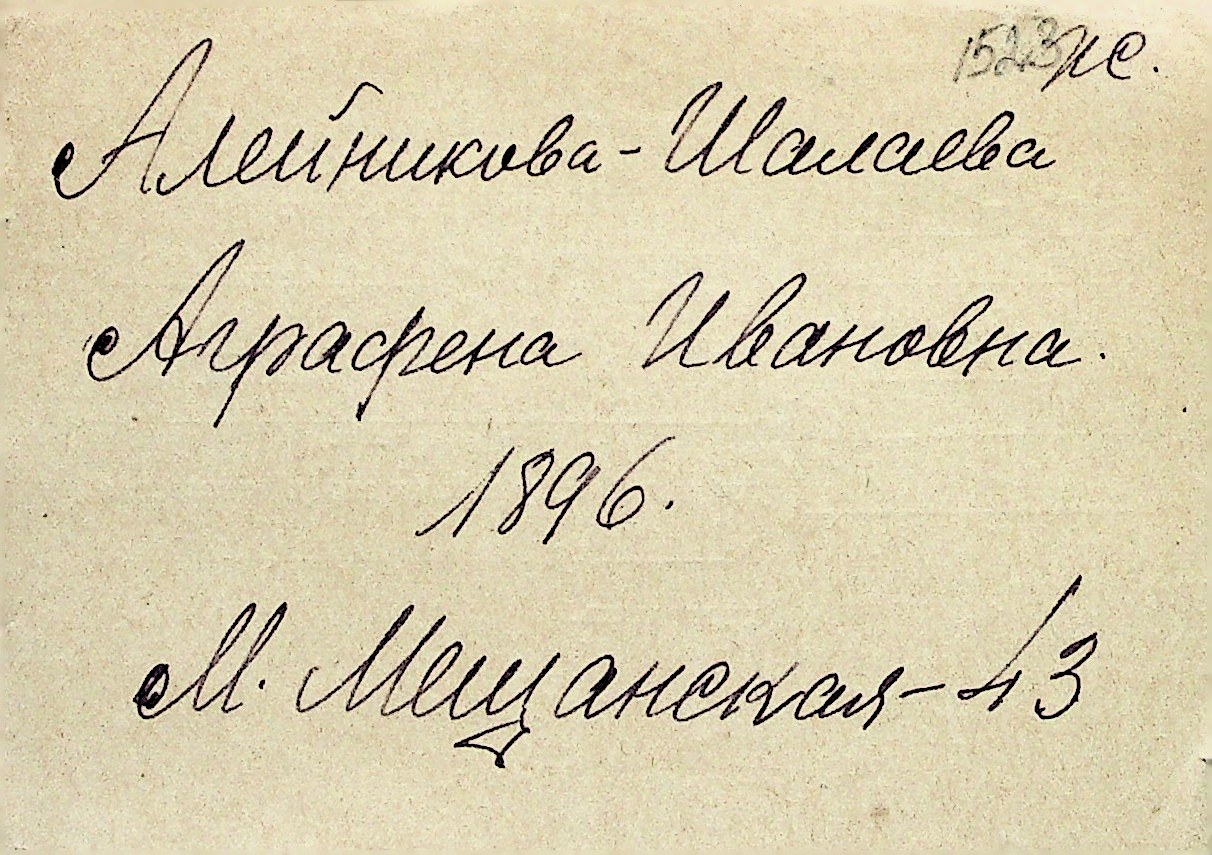 1523 жс.
Алейникова-Шалаева
Аграфена Ивановна.
1896.
М. Мещанская-43